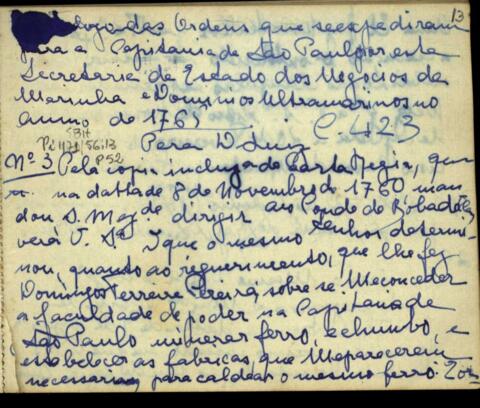 13
das Ordens que se expediram
para a Capitania de São Paulo por esta
Secretaria de Estado dos Negocios da
Marinha e Dominios Ultramarinos no
anno de 1765 C. 423
Para D. Luiz
P 52
Nº 3 Pela copia incluza da Carta Regia, que
na datta de 8 de Novembro de 1760 man
dou S. Mag.de dirigir ao Conde de Bobadela,
verá V. Sª que o mesmo Senhor determi
nou, quanto ao requerimento, que lhe fez
Domingos Ferreira Pereira, sobre se lhe conceder
a faculdade de poder na Capitania de
São Paulo minerar ferro, e chumbo, e
estabelecer as fabricas que lhe parecerem
necessarias para caldear o mesmo ferro.